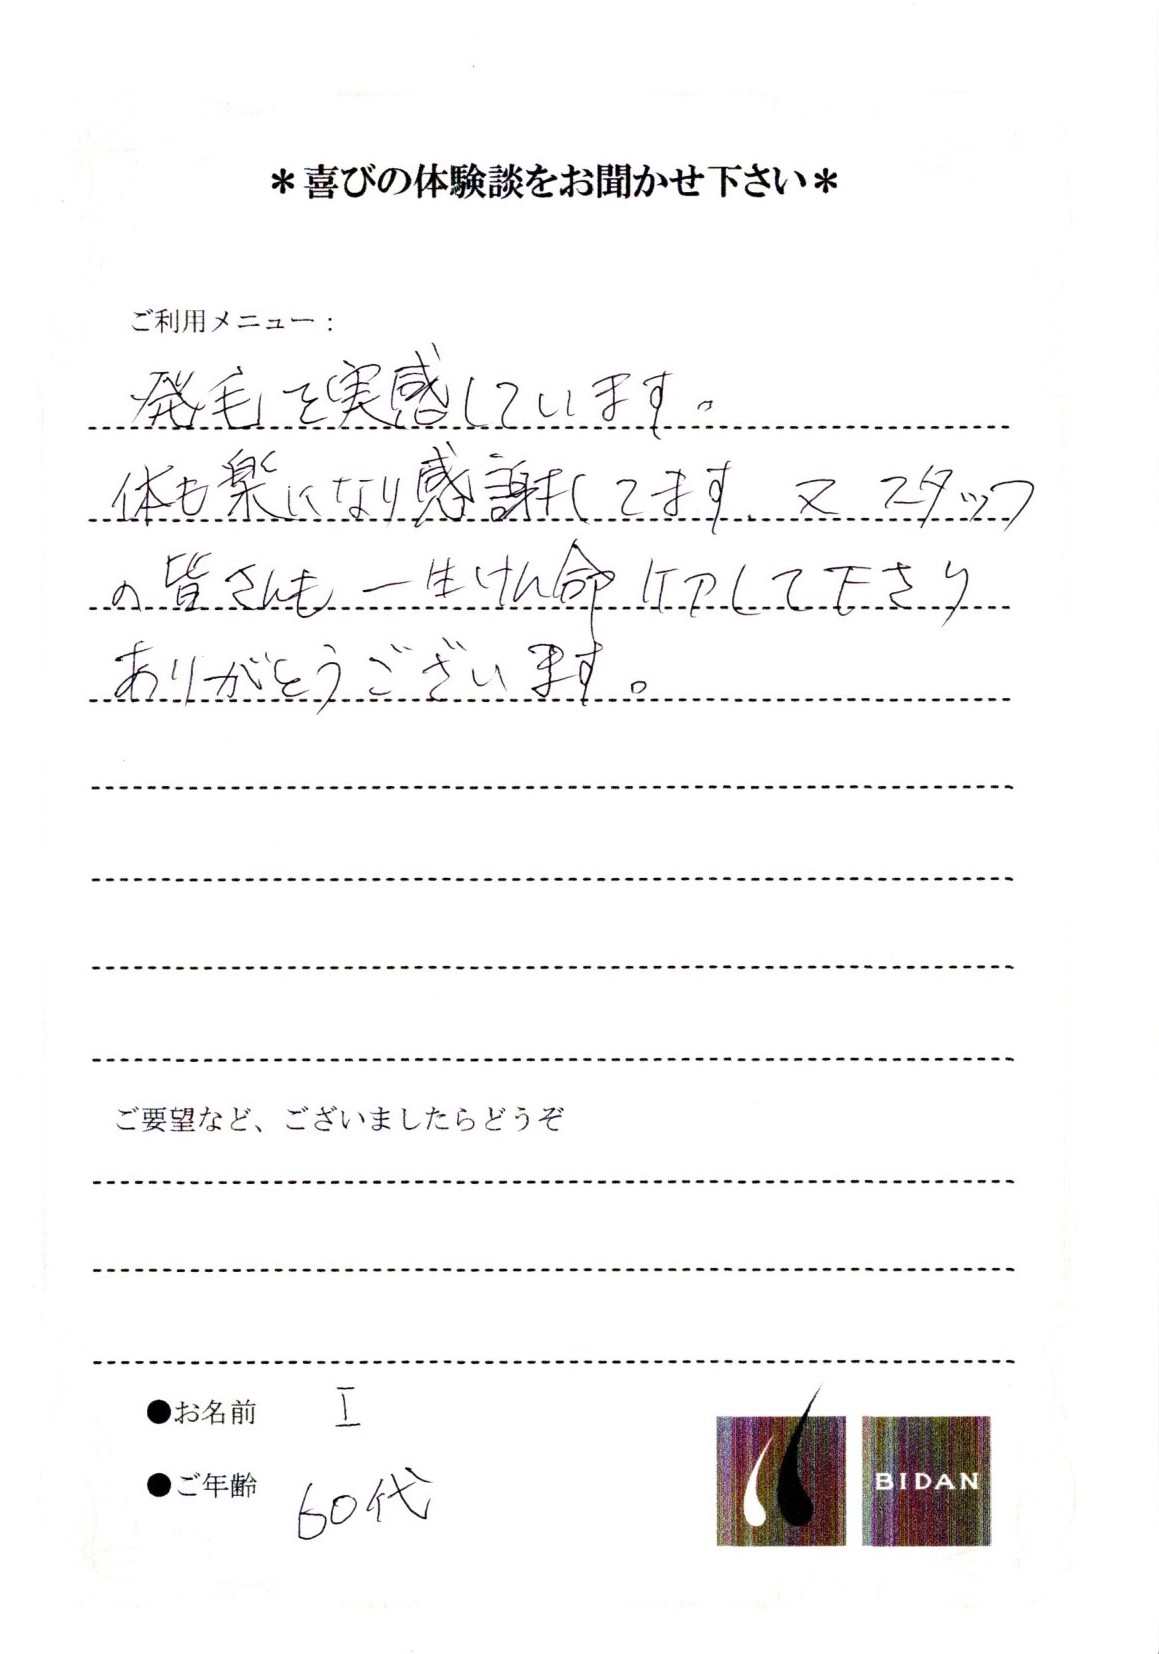 ＊喜びの体験談をお聞かせ下さい＊
ご利用メニュー：
発毛を実感しています。
体も楽になり感謝してます、又 スタッフ
の皆さんも一生けん命ケアして下さり
ありがとうございます。
ご要望など、ございましたらどうぞ
●お名前 I
●ご年齢 60代
BIDAN